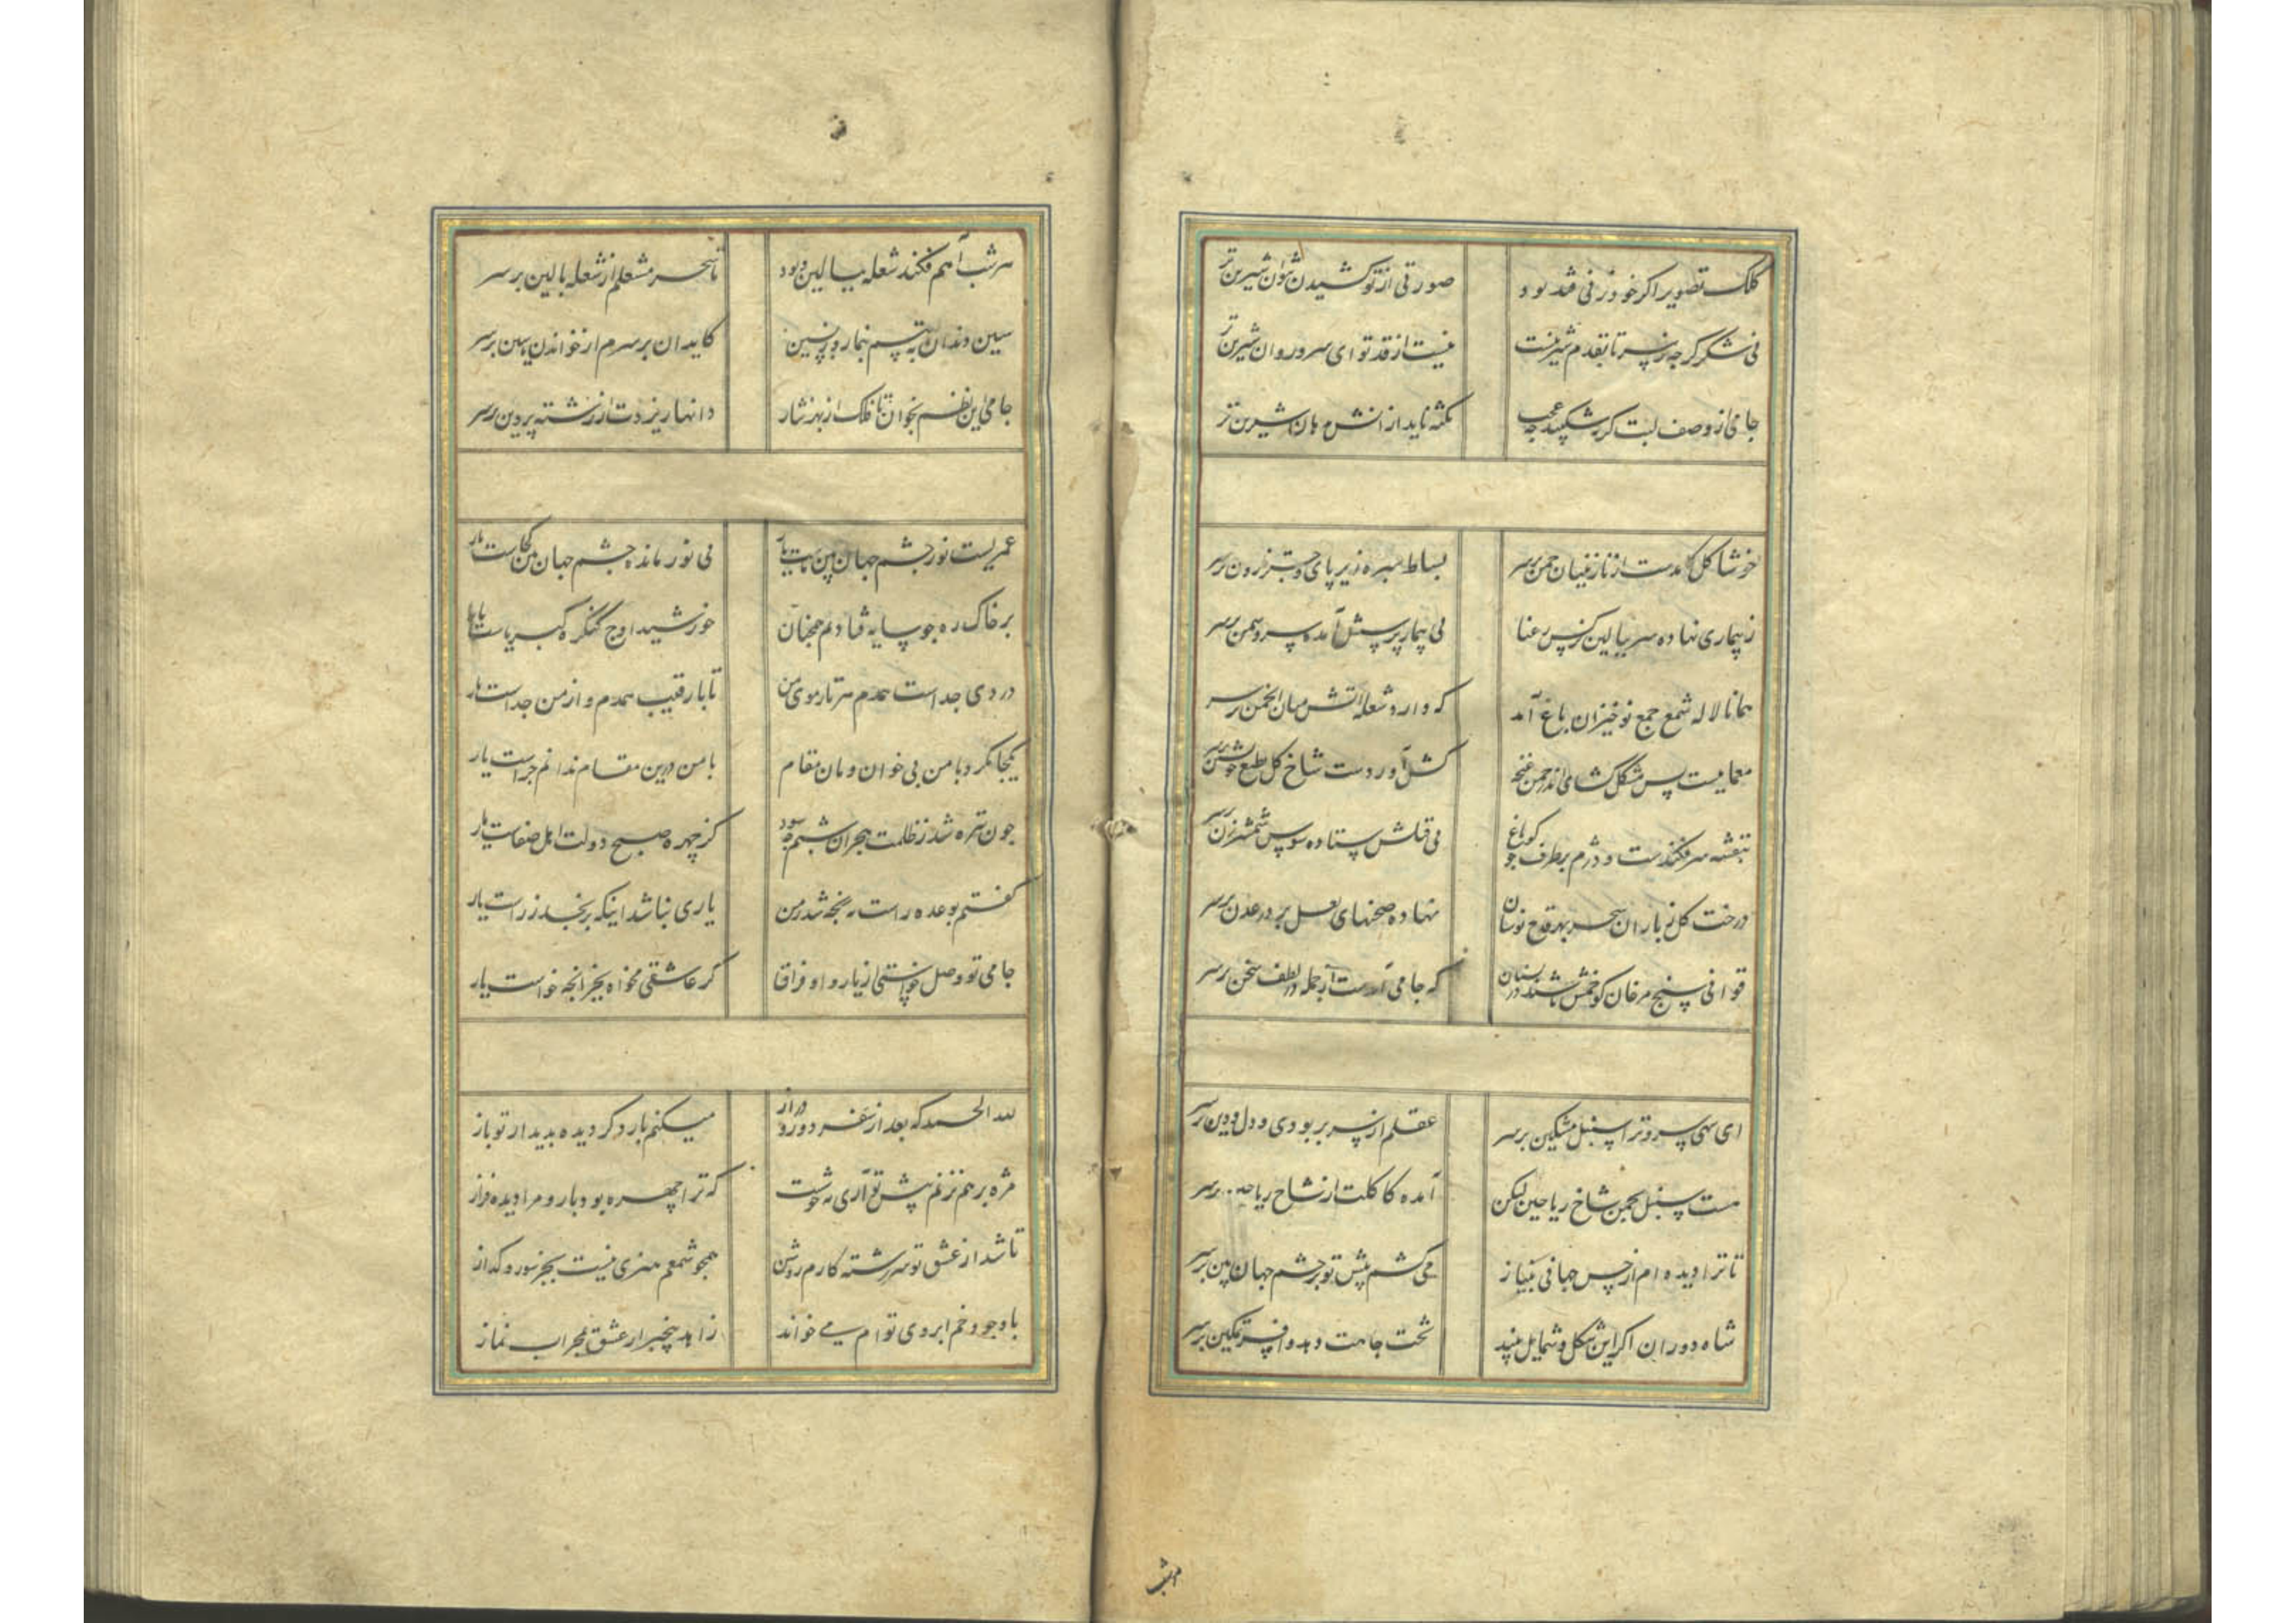 کلک تصویر اگر خود ز نی قند بود صورتی از تو کشیدن نتوان شیرین تر
نی شکر گرچه ز سر تا بقدم شیرینست نیست از قد تو ای سرو روان شیرین تر
جامی از وصف لبت گر شکند چه عجب نکته ناید از انش بزبان شیرین تر
خوشا گل کامدست از نازنینان چمن بر سر بساط سبزه زیر پای و چتر نارون بر سر
ز بیماری نهاده سر ببالین نرگس رعنا پی بیمار پرسش آمده سرو و سمن بر سر
همانا لاله شمع جمع نوخیزان باغ آمد که دارد شعله آتش میان انجمن بر سر
معماییست پس مشکل گشای اندر چمن غنچه کش آوردست شاخ گل طبع خویشتن بر سر
بنفشه سر فکندست و دژم بر طرف جو گواغ پی قتلش ستاده سوسن شمشیرزن بر سر
درخت گل ز باران سحر بهر قدح نوشان نهاده صحنهای لعل پر در عدن بر سر
قوافی سنج مرغان کو خمش باشند در بستان که جامی آمدست از جمله در لطف سخن بر سر
ای سهی سرو ترا سنبل مشکین بر سر عقلم از سر بربودی و دل و دین بر سر
هست سنبل بچمن شاخ ریاحین لیکن آمده کاکلت از شاخ ریاحین بر سر
تا ترا دیده ام از حسن جهانی بنیاز می کشم پیش تو بر چشم جهان بین بر سر
شاه دوران اگر این شکل و شمایل بیند تخت جاهت دهد و افسر تمکین بر سر
هر شب
هر شب آهم فکند شعله ببالین و بود تا سحر مشعلم از شعله بالین بر سر
سین دندان بتبسم بنما روز پسین کایدان بر سرم از خواندن یاسین بر سر
جامی این نظم بخوان تا فلک از بهر نثار دانها ریزدت از رشته پروین بر سر
عمریست نور چشم جهان بین ماست یار بی نور مانده چشم جهان بین کجاست یار
بر خاک ره چو سایه فتادیم همچنان خورشید اوج کنگره کبریاست یار
دردی جداست همدم هر تار موی من تا با رقیب همدم و از من جداست یار
یکجا نکرد با من بی خوان و مان مقام با من درین مقام ندانم چراست یار
چون تیره شد ز ظلمت هجران شبم چه سود کز چهره صبح دولت اهل صفاست یار
گفتم بوعده راست نه رنجه شد ز من یاری نباشد اینکه برنجد ز راست یار
جامی تو وصل خواستی از یار و او فراق گر عاشقی مخواه بجز آنچه خواست یار
لله الحمد که بعد از سفر دور و دراز میکنم بار دگر دیده بدیدار تو باز
مژه بر هم نزنم پیش تو آری نه خوشست که ترا چهره بود باز و مرا دیده فراز
تا شد از عشق تو سر رشته کارم روشن همچو شمعم هنری نیست بجز سوز و گداز
با وجود خم ابروی توام می خواند زاهد بیخبر از عشق بمحراب نماز